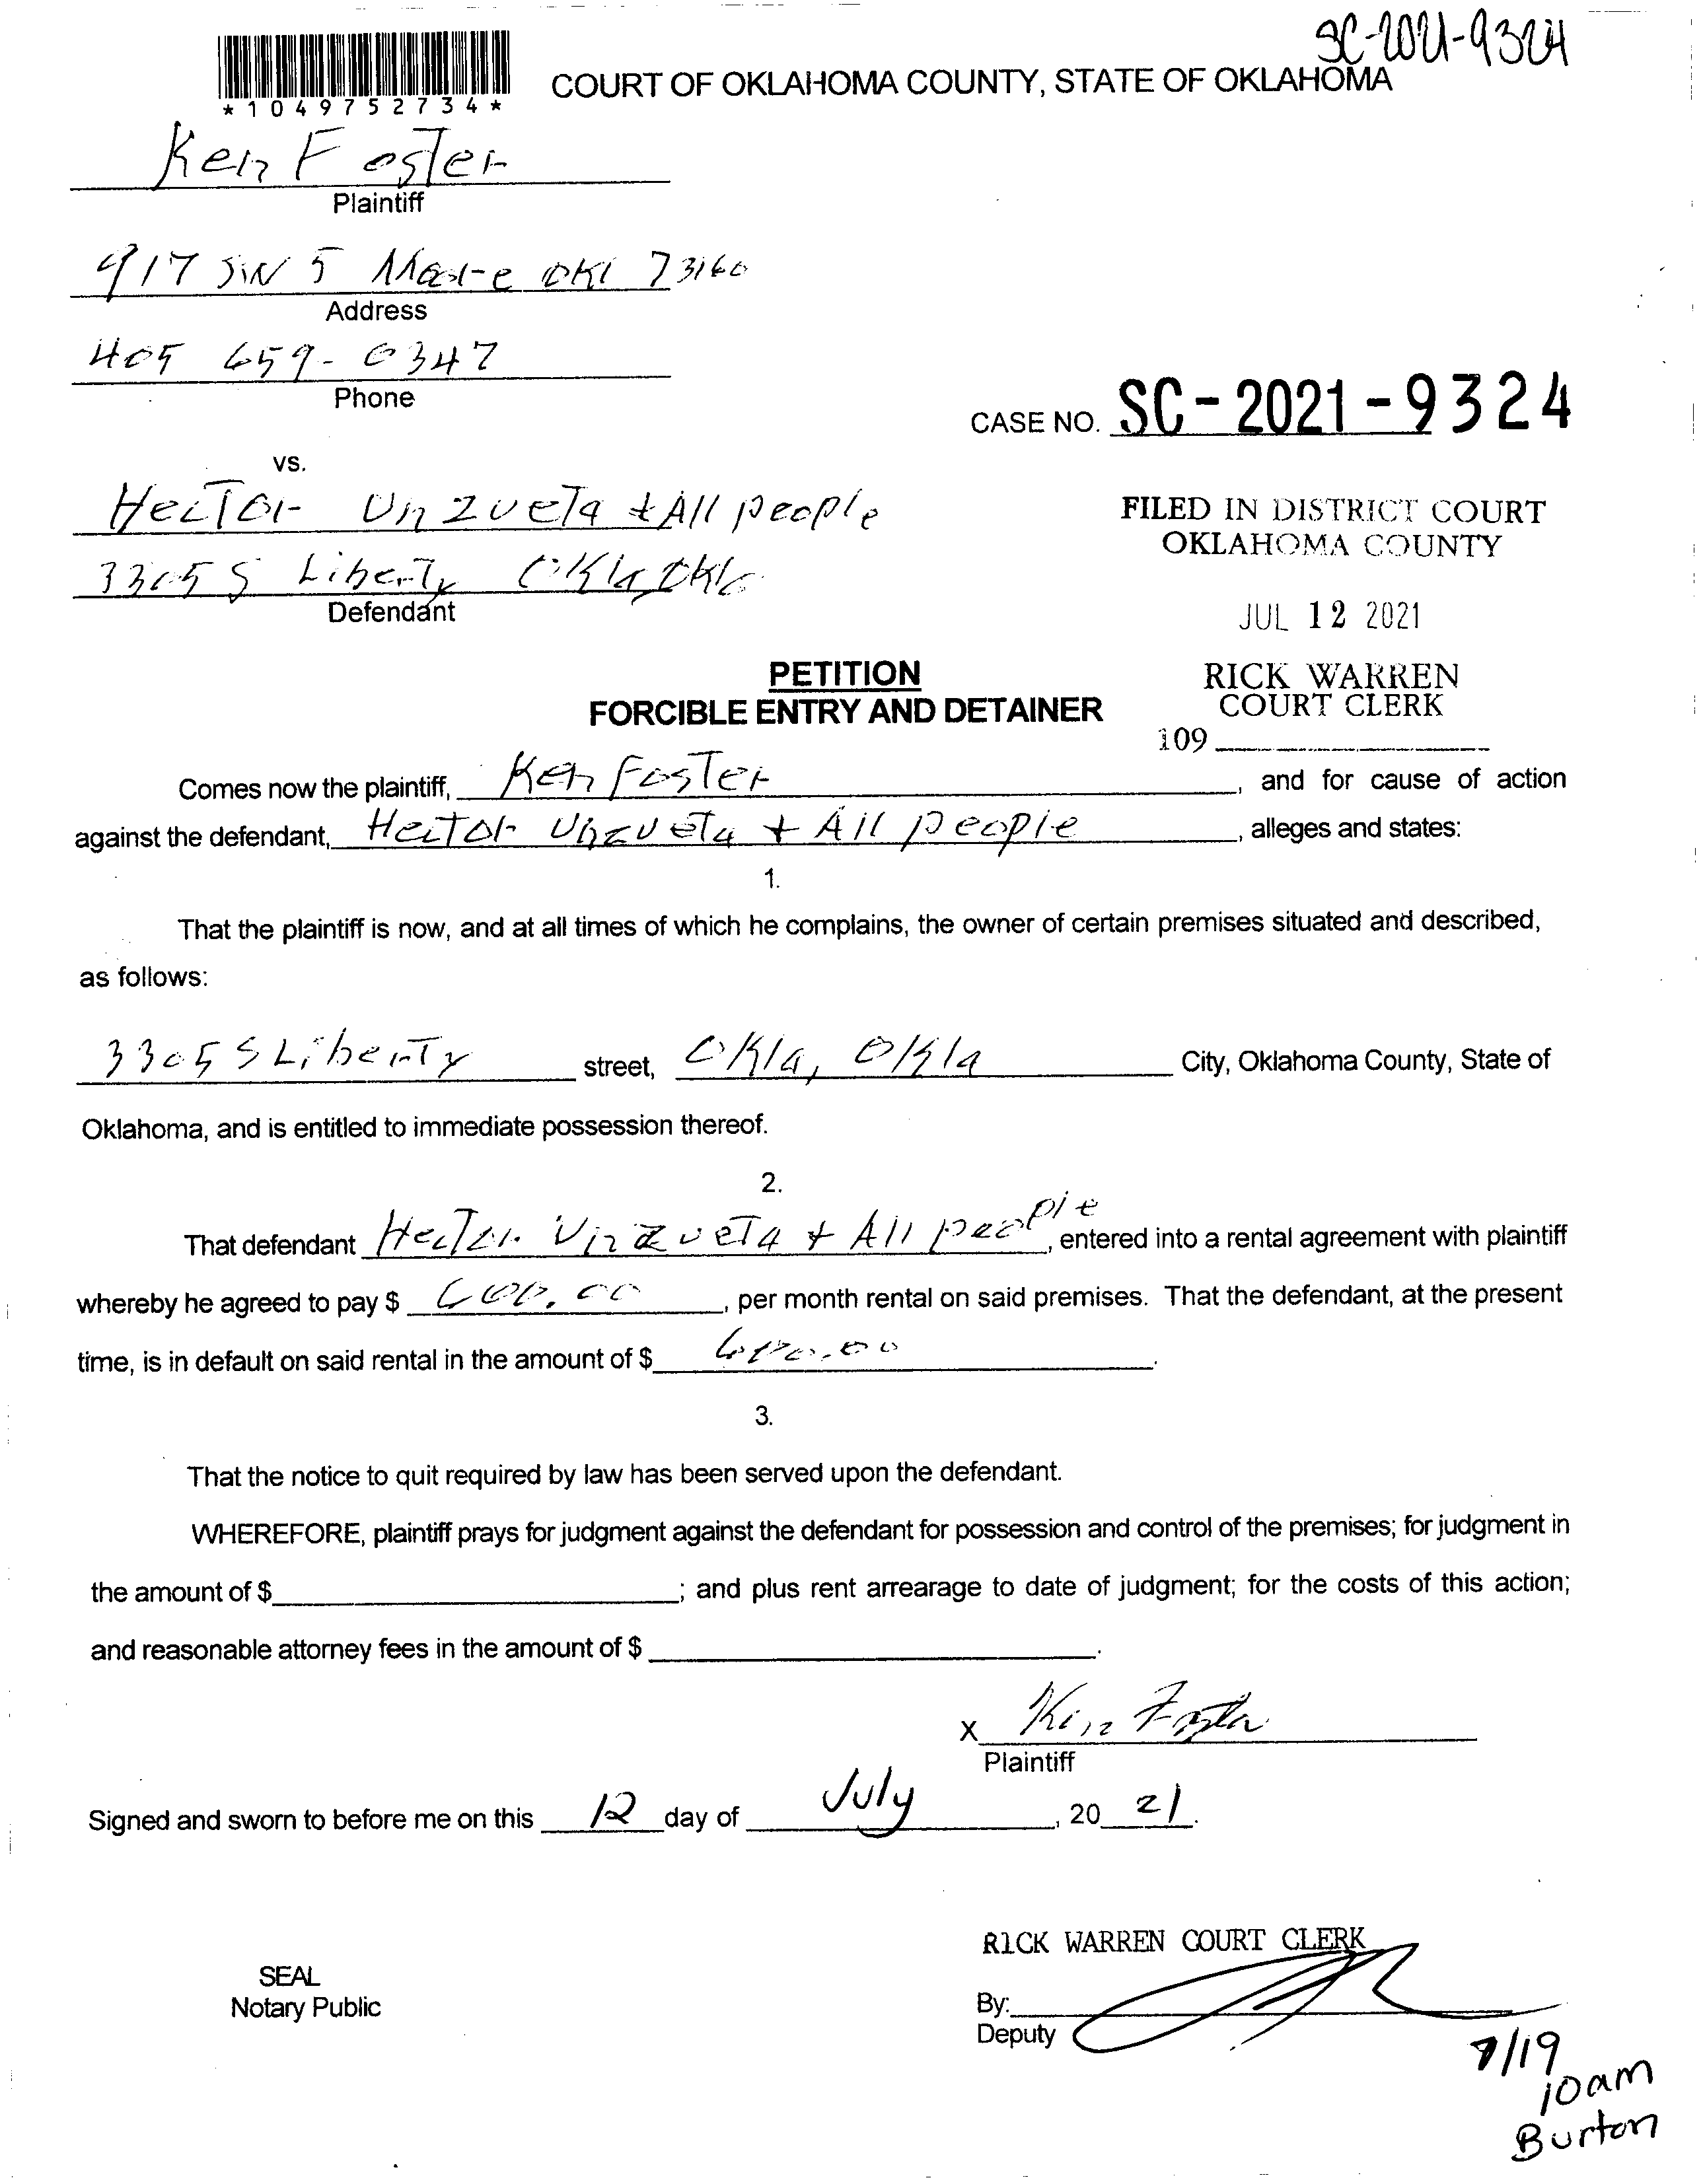 SC-2021-9324
*1049752734*
COURT OF OKLAHOMA COUNTY, STATE OF OKLAHOMA
Ken Foster
Plaintiff
917 SW 5 Moore Okl 73160
Address
405 659-0347
Phone
CASE NO. SC-2021-9324
vs.
Hector Unzueta + All people
3305 S Liberty Okla, Okla
Defendant
FILED IN DISTRICT COURT
OKLAHOMA COUNTY
JUL 12 2021
RICK WARREN
COURT CLERK
109
PETITION
FORCIBLE ENTRY AND DETAINER
Comes now the plaintiff, Ken Foster, and for cause of action
against the defendant, Hector Unzueta + All people, alleges and states:
1.
That the plaintiff is now, and at all times of which he complains, the owner of certain premises situated and described,
as follows:
3305 S Liberty street, Okla, Okla City, Oklahoma County, State of
Oklahoma, and is entitled to immediate possession thereof.
2.
That defendant Hector Unzueta + All people, entered into a rental agreement with plaintiff
whereby he agreed to pay $ 600.00, per month rental on said premises. That the defendant, at the present
time, is in default on said rental in the amount of $ 600.00.
3.
That the notice to quit required by law has been served upon the defendant.
WHEREFORE, plaintiff prays for judgment against the defendant for possession and control of the premises; for judgment in
the amount of $ ; and plus rent arrearage to date of judgment; for the costs of this action;
and reasonable attorney fees in the amount of $ .
X Ken Foster
Plaintiff
Signed and sworn to before me on this 12 day of July, 20 21.
RICK WARREN COURT CLERK
SEAL
Notary Public
By:
Deputy
7/19
10am
Burton